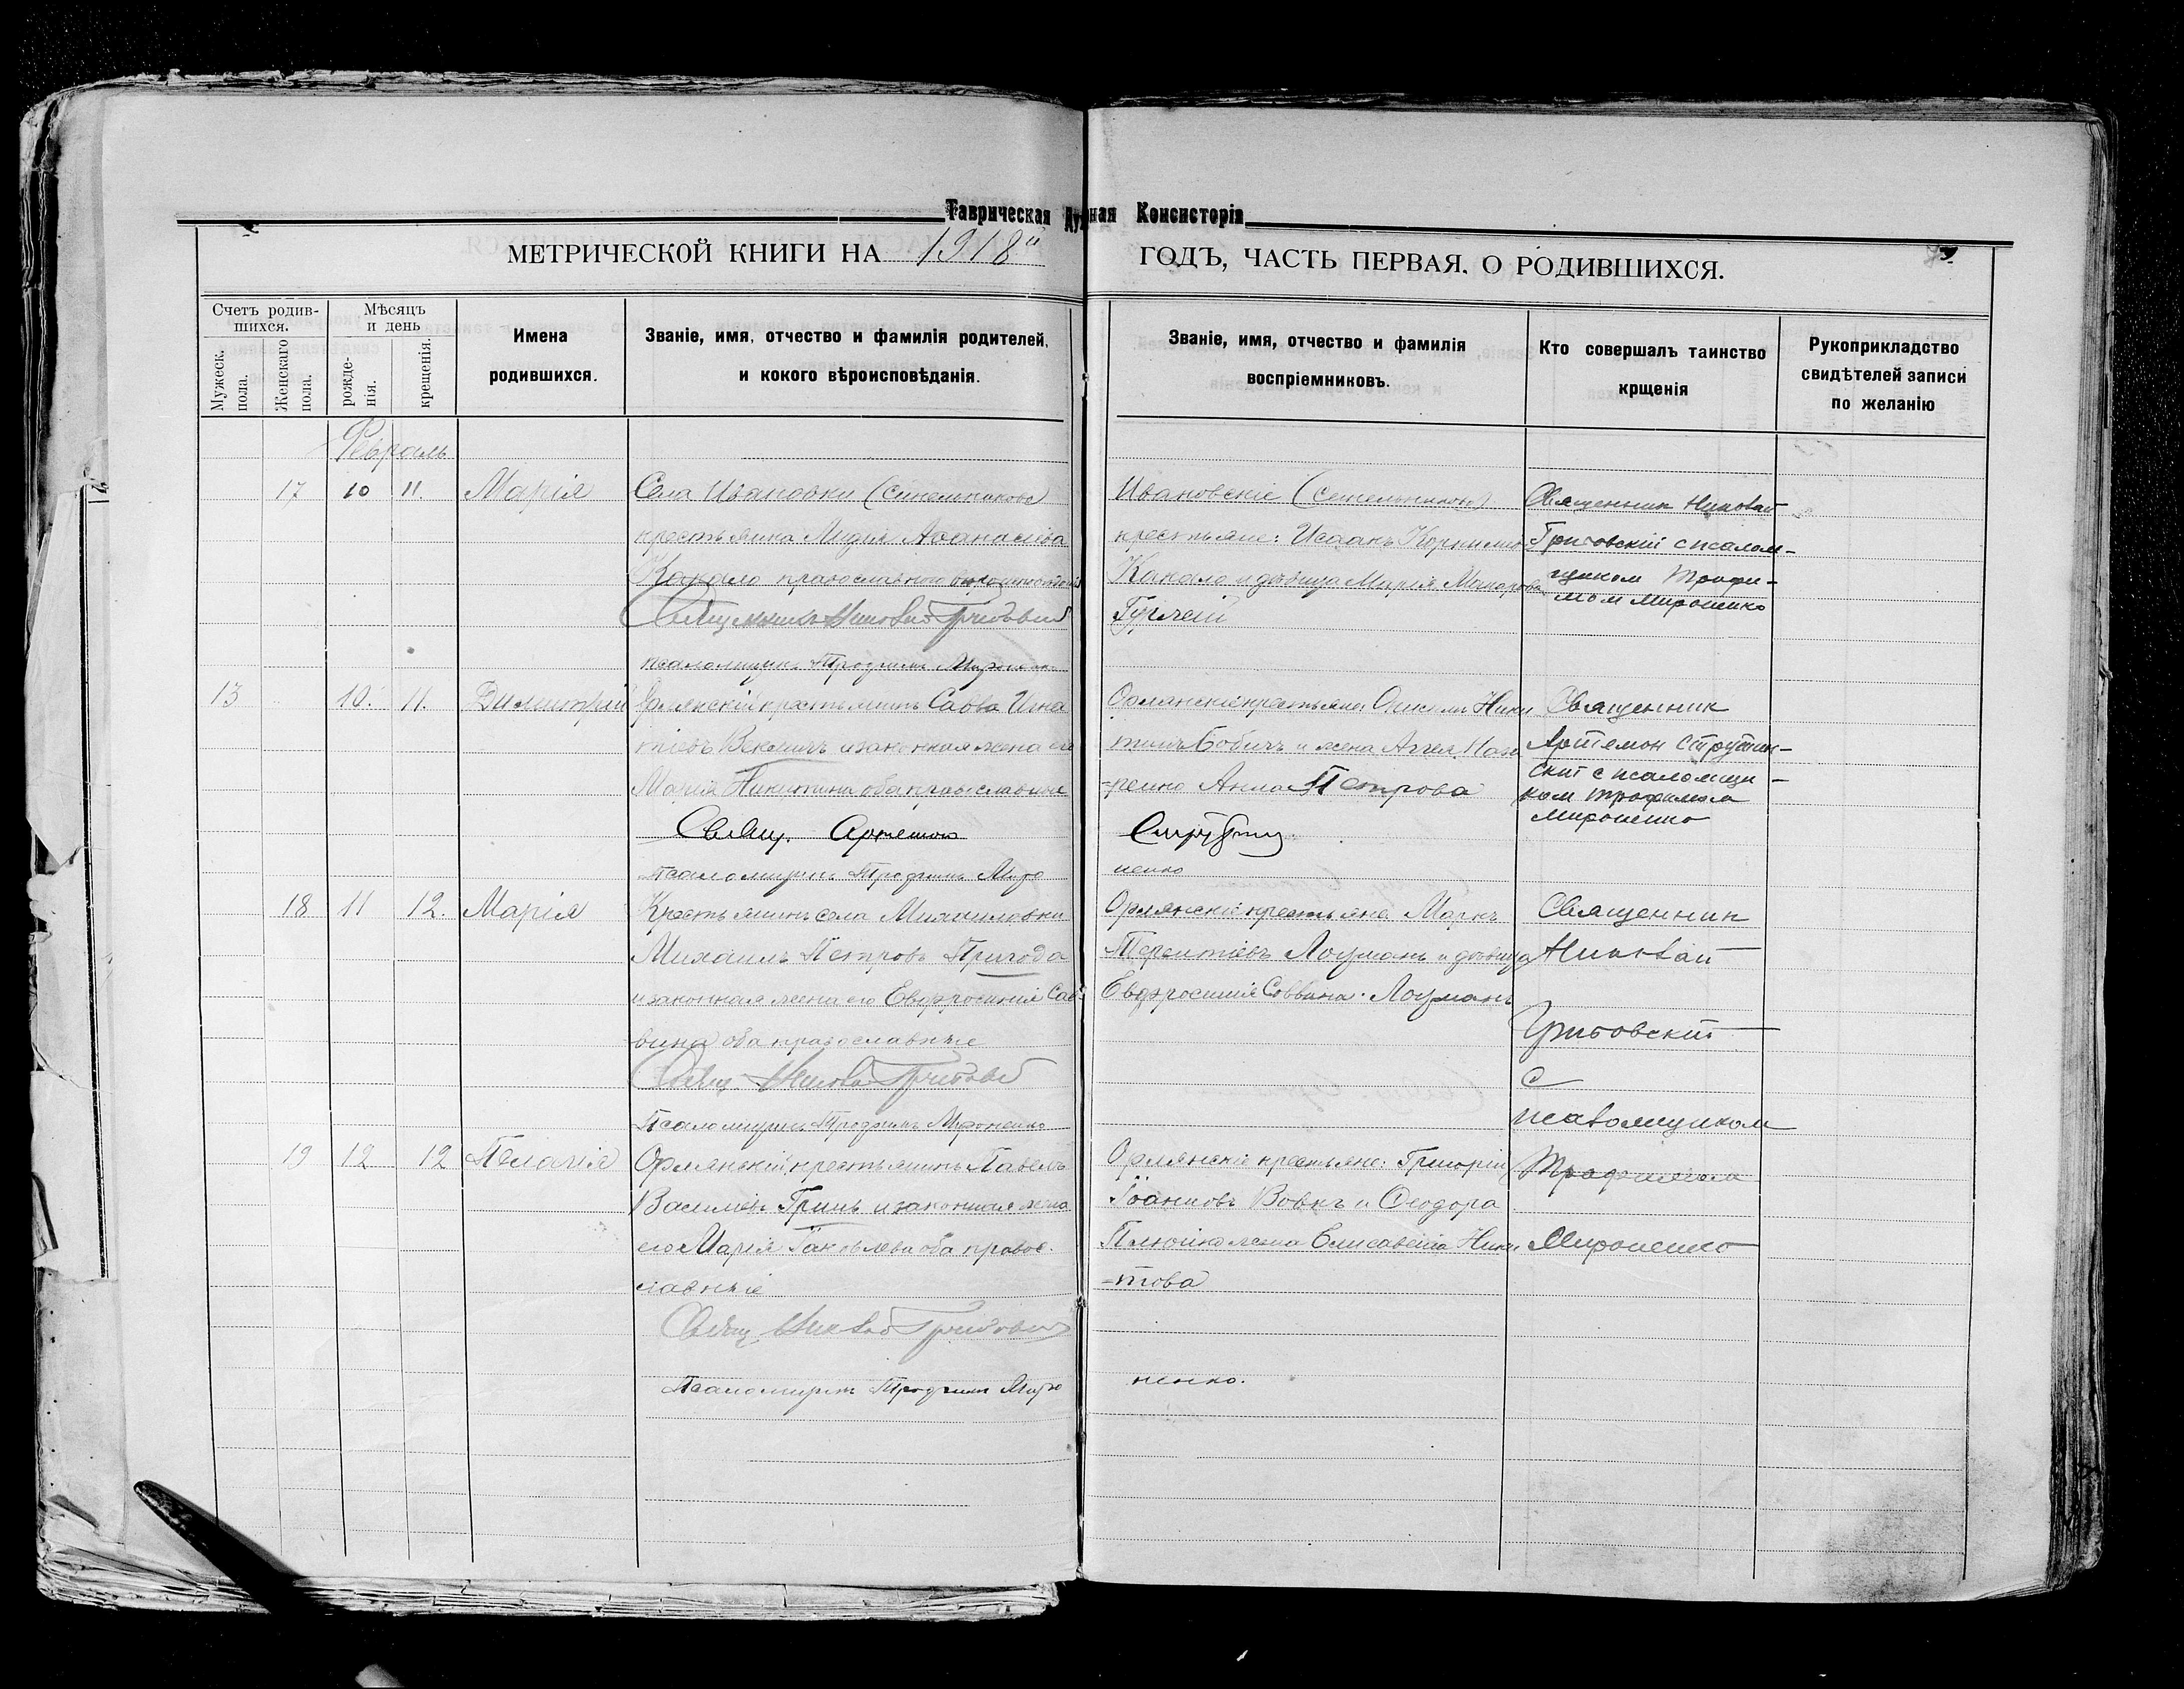 Таврическая Духная Консисторія
МЕТРИЧЕСКОЙ КНИГИ НА 1918й ГОДЪ, ЧАСТЬ ПЕРВАЯ. О РОДИВШИХСЯ.
Счетъ родив-
шихся.
Мужеск. пола.
Женскаго пола.
Мѣсяцъ
и день
рожде-
нія.
крещенія.
Имена
родившихся.
Званіе, имя, отчество и фамилія родителей,
и кокого вѣроисповѣданія.
Званіе, имя, отчество и фамилія
воспріемниковъ.
Кто совершалъ таинство
крщенія
Рукоприкладство
свидѣтелей записи
по желанію
Февраль
17 10 11. Марія
Села Ивановки (Синельниково)
крестьянка Лидія Аѳанасіева
Канало православнаго
Священникъ Николай Григовскій
псаломщикъ Трофимъ Мироненко
Ивановскіе
крестьяне: Исаакъ
Канало и дѣвица Марія Макарова
Священник Николай
Григовскій с псалом-
щиком Трофи-
мом Мироненко
13 10. 11. Димитрій
Орлянскій крестьянинъ Савва Игна
тіевъ и законная жена его
Марія Никитина оба православные
Свящ. Артемон
псаломщикъ Трофимъ Миро
Орлянскіе крестьяне Ники
тинъ Бобичъ и жена
Анна Петрова
ненко
Священник
Артемон Струтин-
скій с псаломщи-
ком Трофимом
Мироненко
18 11 12. Марія
Крестьянинъ села Михайловки
Михаилъ Петровъ Пригода
и законная жена его Евфросинія Сав
вина оба православные
Свящ. Николай Григовскій
Псаломщикъ Трофимъ Мироненко
Орлянскіе крестьяне Маркъ
Терентіевъ Лоцманъ и дѣвица
Евфросинія Саввина Лоцманъ
Священник
Николай
Григовскій
с
псаломщиком
Трофимом
Мироненко
19 12 12 Пелагія
Орлянскій крестьянинъ Павелъ
Василіевъ Гринь и законная жена
его Марія Іаковлева оба правос-
лавные
Свящ. Николай Григовскій
Псаломщикъ Трофимъ Миро
Орлянскіе крестьяне: Григорій
Іоанновъ Вовкъ и Ѳеодора
жена Елисавета Ники
=това
ненко.